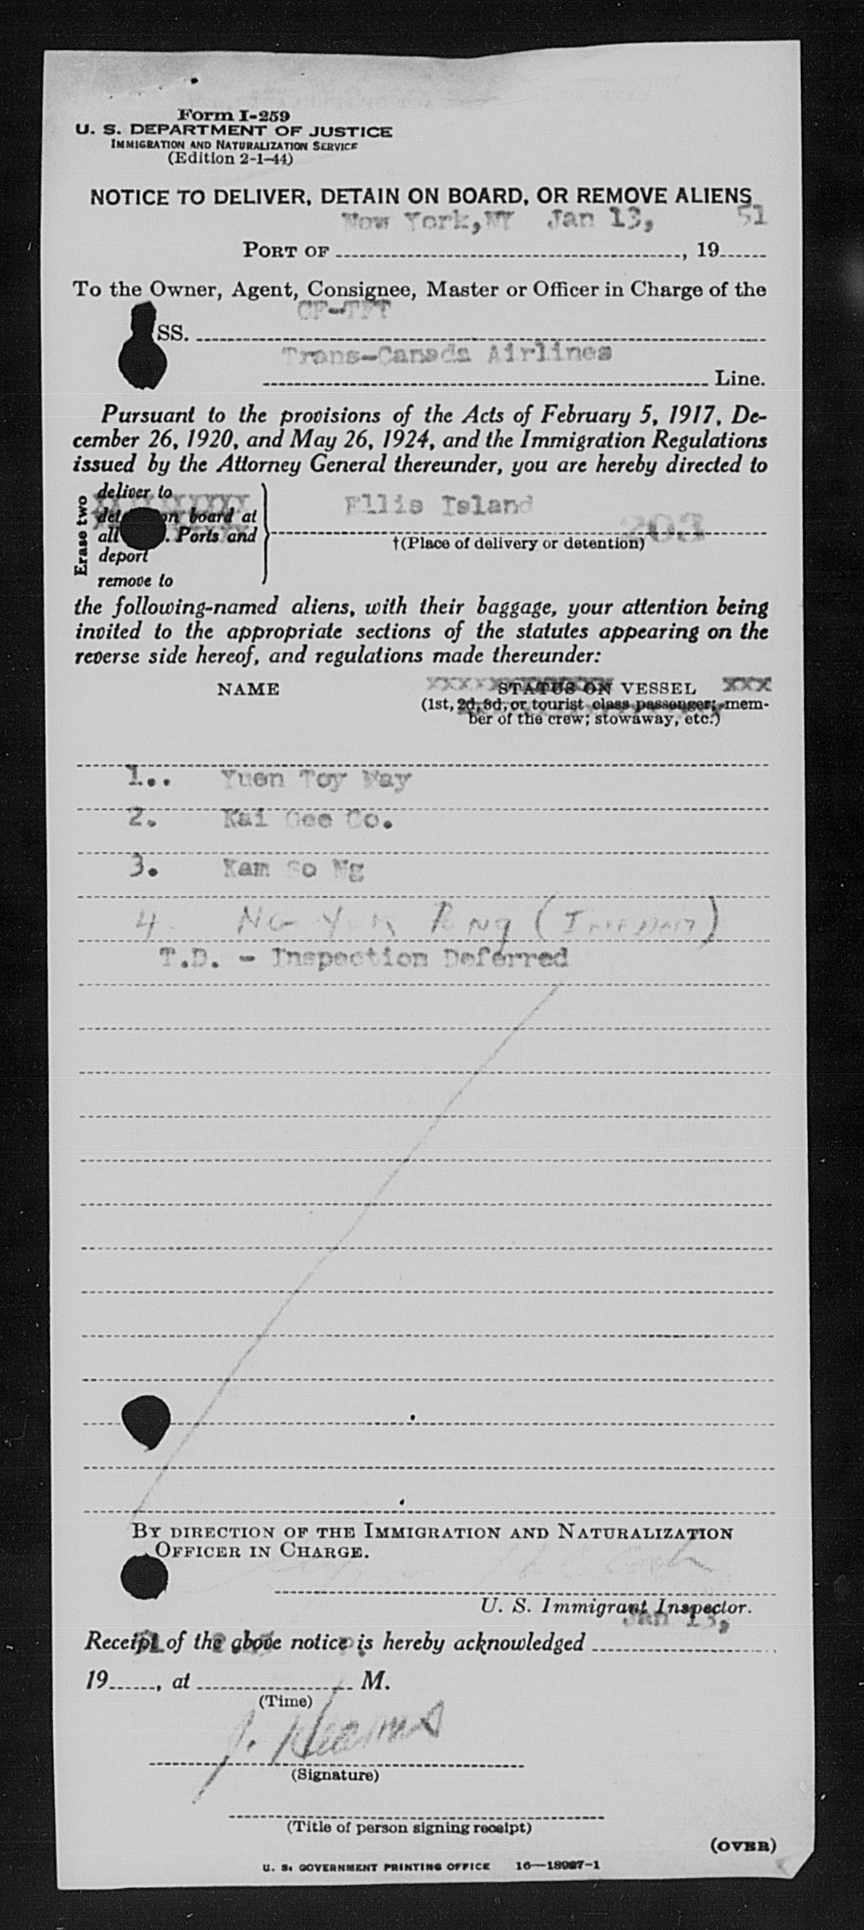 Form I-259
U. S. DEPARTMENT OF JUSTICE
IMMIGRATION AND NATURALIZATION SERVICE
(Edition 2-1-44)
NOTICE TO DELIVER, DETAIN ON BOARD, OR REMOVE ALIENS
New York, NY Jan 13, 51
PORT OF , 19
To the Owner, Agent, Consignee, Master or Officer in Charge of the
CF-TFT
SS.
Trans-Canada Airlines
Line.
Pursuant to the provisions of the Acts of February 5, 1917, De-
cember 26, 1920, and May 26, 1924, and the Immigration Regulations
issued by the Attorney General thereunder, you are hereby directed to
Erase two
deliver to
on board at
all Ports and
deport
remove to
Ellis Island
203
†(Place of delivery or detention)
the following-named aliens, with their baggage, your attention being
invited to the appropriate sections of the statutes appearing on the
reverse side hereof, and regulations made thereunder:
NAME XXXXXX STATUS ON VESSEL XXX
(1st, 2d, 3d, or tourist class passenger; mem-
ber of the crew; stowaway, etc.)
1.. Yuen Toy Way
2. Kai Gee Co.
3. Kam So Ng
4. NG
T.D. - Inspection Deferred
BY DIRECTION OF THE IMMIGRATION AND NATURALIZATION
OFFICER IN CHARGE.
U. S. Immigrant Inspector.
Jan 13,
Receipt of the above notice is hereby acknowledged
19 , at M.
(Time)
J. Kearns
(Signature)
(Title of person signing receipt)
(OVER)
U. S. GOVERNMENT PRINTING OFFICE 16—18987-1